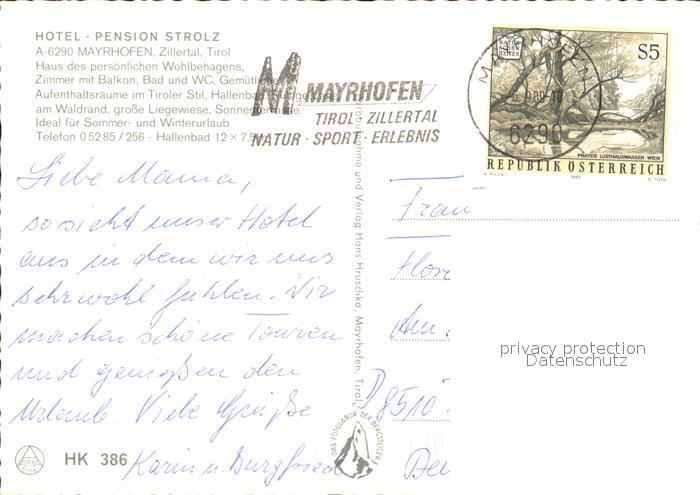 HOTEL - PENSION STROLZ
A-6290 MAYRHOFEN, Zillertal, Tirol
Haus des persönlichen Wohlbehagens,
Zimmer mit Balkon, Bad und WC, Gemütliche
Aufenthaltsräume im Tiroler Stil, Hallenbad
am Waldrand, große Liegewiese, Sonnenterrasse.
Ideal für Sommer- und Winterurlaub
Telefon 0 52 85 / 256 - Hallenbad 12 × 7,5
M MAYRHOFEN
TIROL · ZILLERTAL
NATUR · SPORT · ERLEBNIS
MAYRHOFEN
6290
NATUR
SCHÖN
HEITEN
S5
PRATER LUSTHAUSWASSER WIEN
REPUBLIK ÖSTERREICH
A. PILCH 1989 R. TOTH
Liebe Mama,
so sieht unser Hotel
aus in dem wir uns
sehr wohl fühlen. Wir
machen schöne Touren
und genießen den
Urlaub. Viele Grüße
Karin u. Burgfried
und Verlag Hans Hruschka, Mayrhofen, Tirol
DAS FOTOLABOR DER BERGSTEIGER
HK 386
Frau
D 8510
privacy protection
Datenschutz